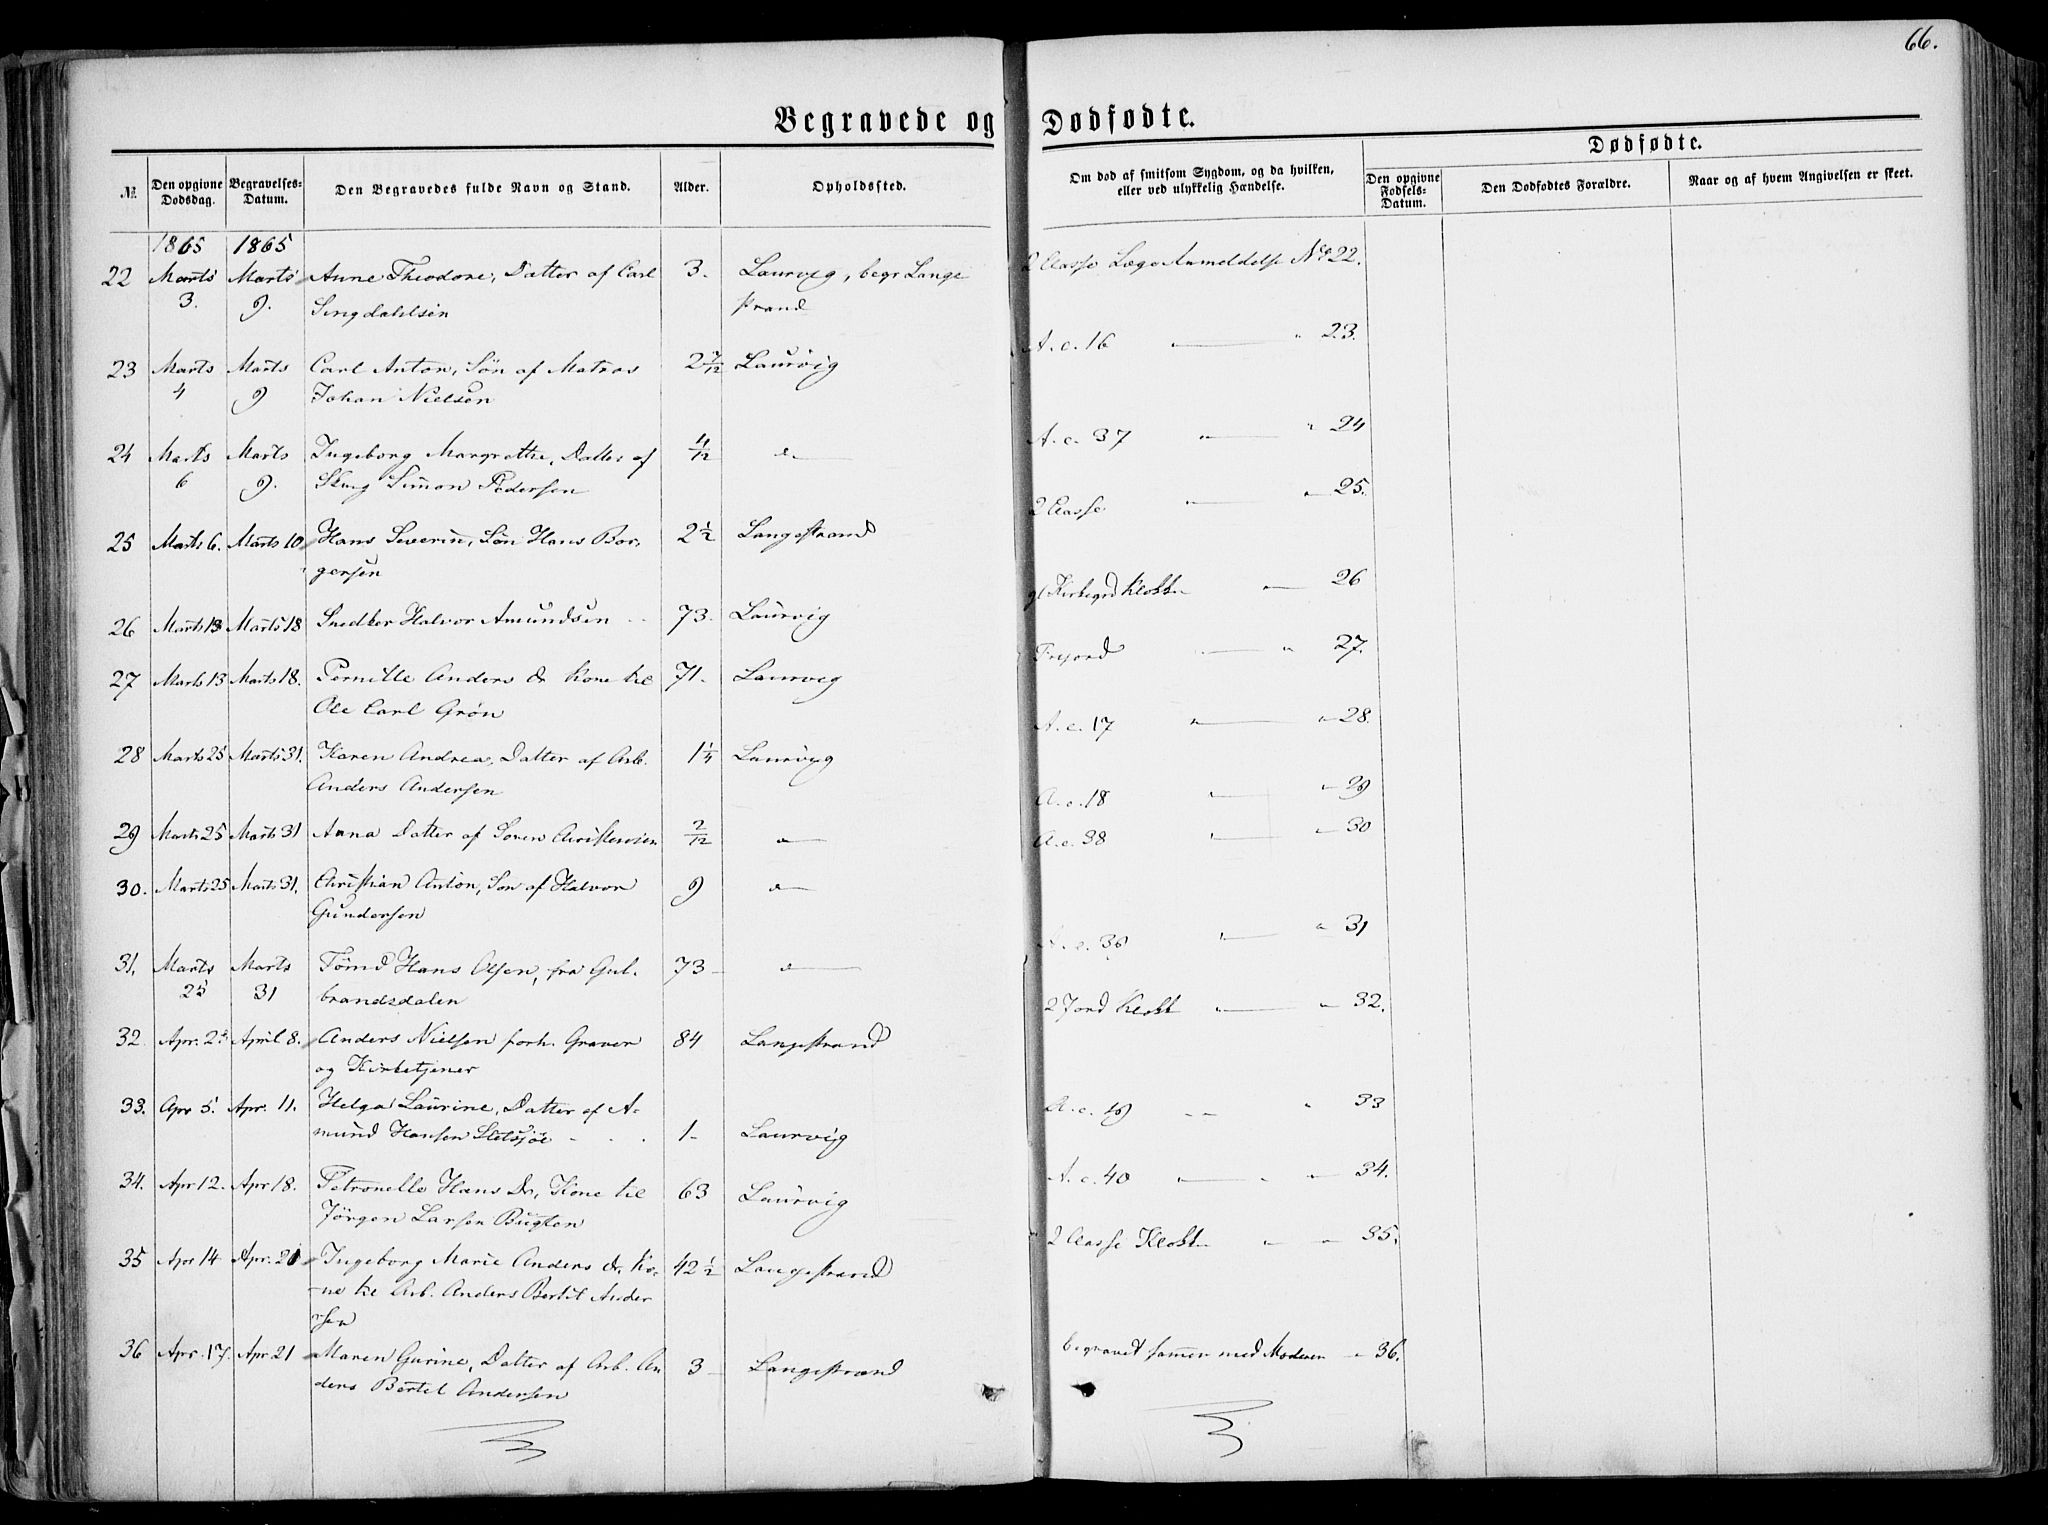 66.
Begravede og Dødfødte.
Dødfødte.
№ Den opgivne Dødsdag. Begravelses-Datum. Den Begravedes fulde Navn og Stand. Alder. Opholdssted. Om død af smitsom Sygdom, og da hvilken, eller ved ulykkelig Hændelse. Den opgivne Fødsels-Datum. Den Dødfødtes Forældre. Naar og af hvem Angivelsen er skeet.
1865 1865
22 Marts Marts Anne Theodore, Datter af Carl 3. Laurvig, begr Lange 2 Classe Læge Anmeldelse No 22.
3. 9. Singdahlsen strand
23 Marts Marts Carl Anton, Søn af Matros 2 7/12 Laurvig A. c. 16 " 23.
4 9 Johan Nielsen
24 Marts Marts Ingeborg Margrethe, Datter af 4/12 d— A. c. 37 " " 24
6 9. Simon Pedersen
25 Marts 6. Marts 10 Hans Severin, Søn Hans Bor- 2 1/2 Langestrand 2 Classe " " 25.
gersen
26 Marts 13 Marts 18 Snedker Halvor Amundsen 73. Laurvig gl Kirkegrd Klokk " 26
27 Marts 13 Marts 18. Pernille Anders dr Kone til 71. Laurvig Frijord " " 27.
Ole Carl Grøn
28 Marts 25 Marts 31. Karen Andrea, Datter af Arb. 1 1/4 Laurvig A. c. 17 " " 28.
Anders Andersen
29 Marts 25 Marts 31 Anna Datter af Soren Christensen 2/12 d— A. c. 18 " " 29
30. Marts 25 Marts 31. Christian Anton, Søn af Halvor 9 d— A. c. 38 " " 30
Gundersen
31. Marts Marts Tømd Hans Olsen, fra Gul- 73 d— A. c. 39 " " 31
25 31 brandsdalen
32. Apr. 2 April 8. Anders Nielsen forh. Graver 84 Langestrand 2 Jord Klokk " " 32.
og Kirketjener
33. Apr 5. Apr. 11. Helga Laurine, Datter af A- A. c. 19 " 33
mund Hansen Sletsjøe 1- Laurvig
34. Apr 12. Apr 18. Petronelle Hans Dr, Kone til 63 Laurvig A. c. 40 " " " 34.
Jörgen Larsen Bugten
35 Apr 14 Apr. 21 Ingeborg Marie Anders dr. Ko- 42 1/2 Langestrand 2 Classe Klokk " " 35.
ne til Arb. Anders Bertil Ander
sen
36 Apr. 17. Apr 21 Maren Gurine, Datter af Arb. An 3 Langestrand begravet sammen med Moderen " 36.
ders Bertel Andersen